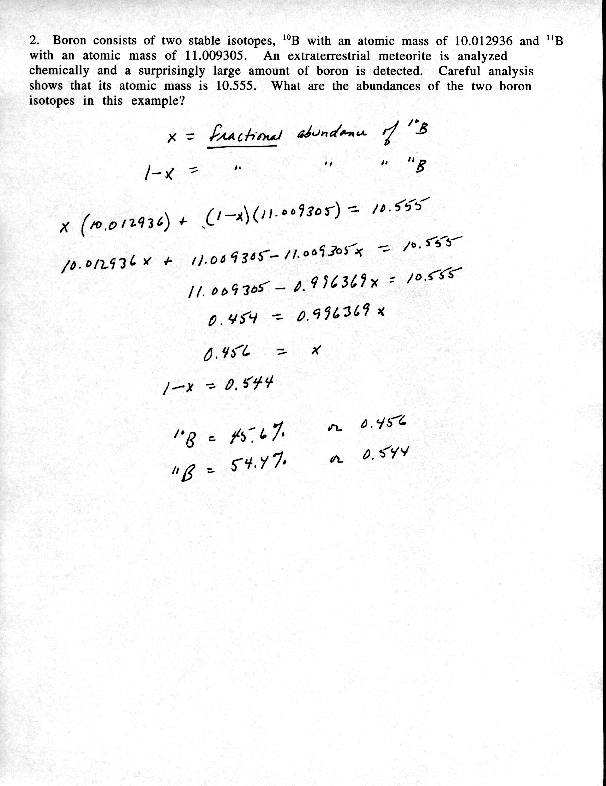 2. Boron consists of two stable isotopes, ¹⁰B with an atomic mass of 10.012936 and ¹¹B
with an atomic mass of 11.009305. An extraterrestrial meteorite is analyzed
chemically and a surprisingly large amount of boron is detected. Careful analysis
shows that its atomic mass is 10.555. What are the abundances of the two boron
isotopes in this example?
x = fractional abundance of ¹⁰B
1-x = " " " ¹¹B
x (10.012936) + (1-x)(11.009305) = 10.555
10.012936 x + 11.009305 - 11.009305 x = 10.555
11.009305 - 0.996369 x = 10.555
0.454 = 0.996369 x
0.456 = x
1-x = 0.544
¹⁰B = 45.6% or 0.456
¹¹B = 54.4% or 0.544